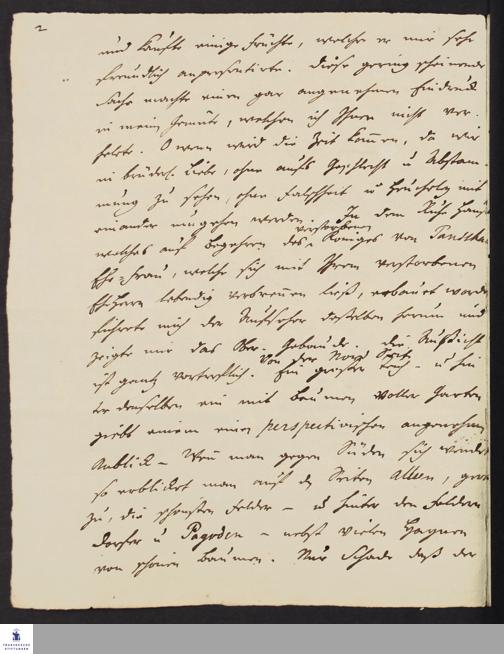 2
und kaufte einige Früchte, welche er mir sehr
freundlich anpresentirte. Diese gering scheinende
Sache machte einen gar angenehmen Eindruck
in mein Gemüte, welchen ich Ihnen nicht ver-
helete. O wenn wird die Zeit kommen, da wir
in brüderl. Liebe, ohne aufs Geschlecht u Abstam-
mung zu sehen, ohne Falschheit u Heucheley mit
einander umgehen werden. In dem Ruhe Hause
verstorbenen
welches auf begehren des Königes von
Ehe-Frau, welche sich mit Ihrem verstorbenen
EheHerrn lebendig verbrennen ließ, erbauet worden
führete mich der Aufseher desselben herum und
zeigte mir das Ober-Gebäude. Die Aussicht
von der Nord Seite
ist gantz vortreflich. Ein großer Teich - u hin
ter denselben ein mit Bäumen voller Garten
giebt einem einen perspectivischen angenehmen
Anblick - Wenn man gegen Süden sich wendet
so erblicket man auf den Seiten Alleen, gera
zu, die schönsten Felder - u hinter den Feldern
Dörfer u Pagoden - nebst vielen Haynen
von schönen Bäumen. Nur Schade daß der
FRANCKESCHE
STIFTUNGEN